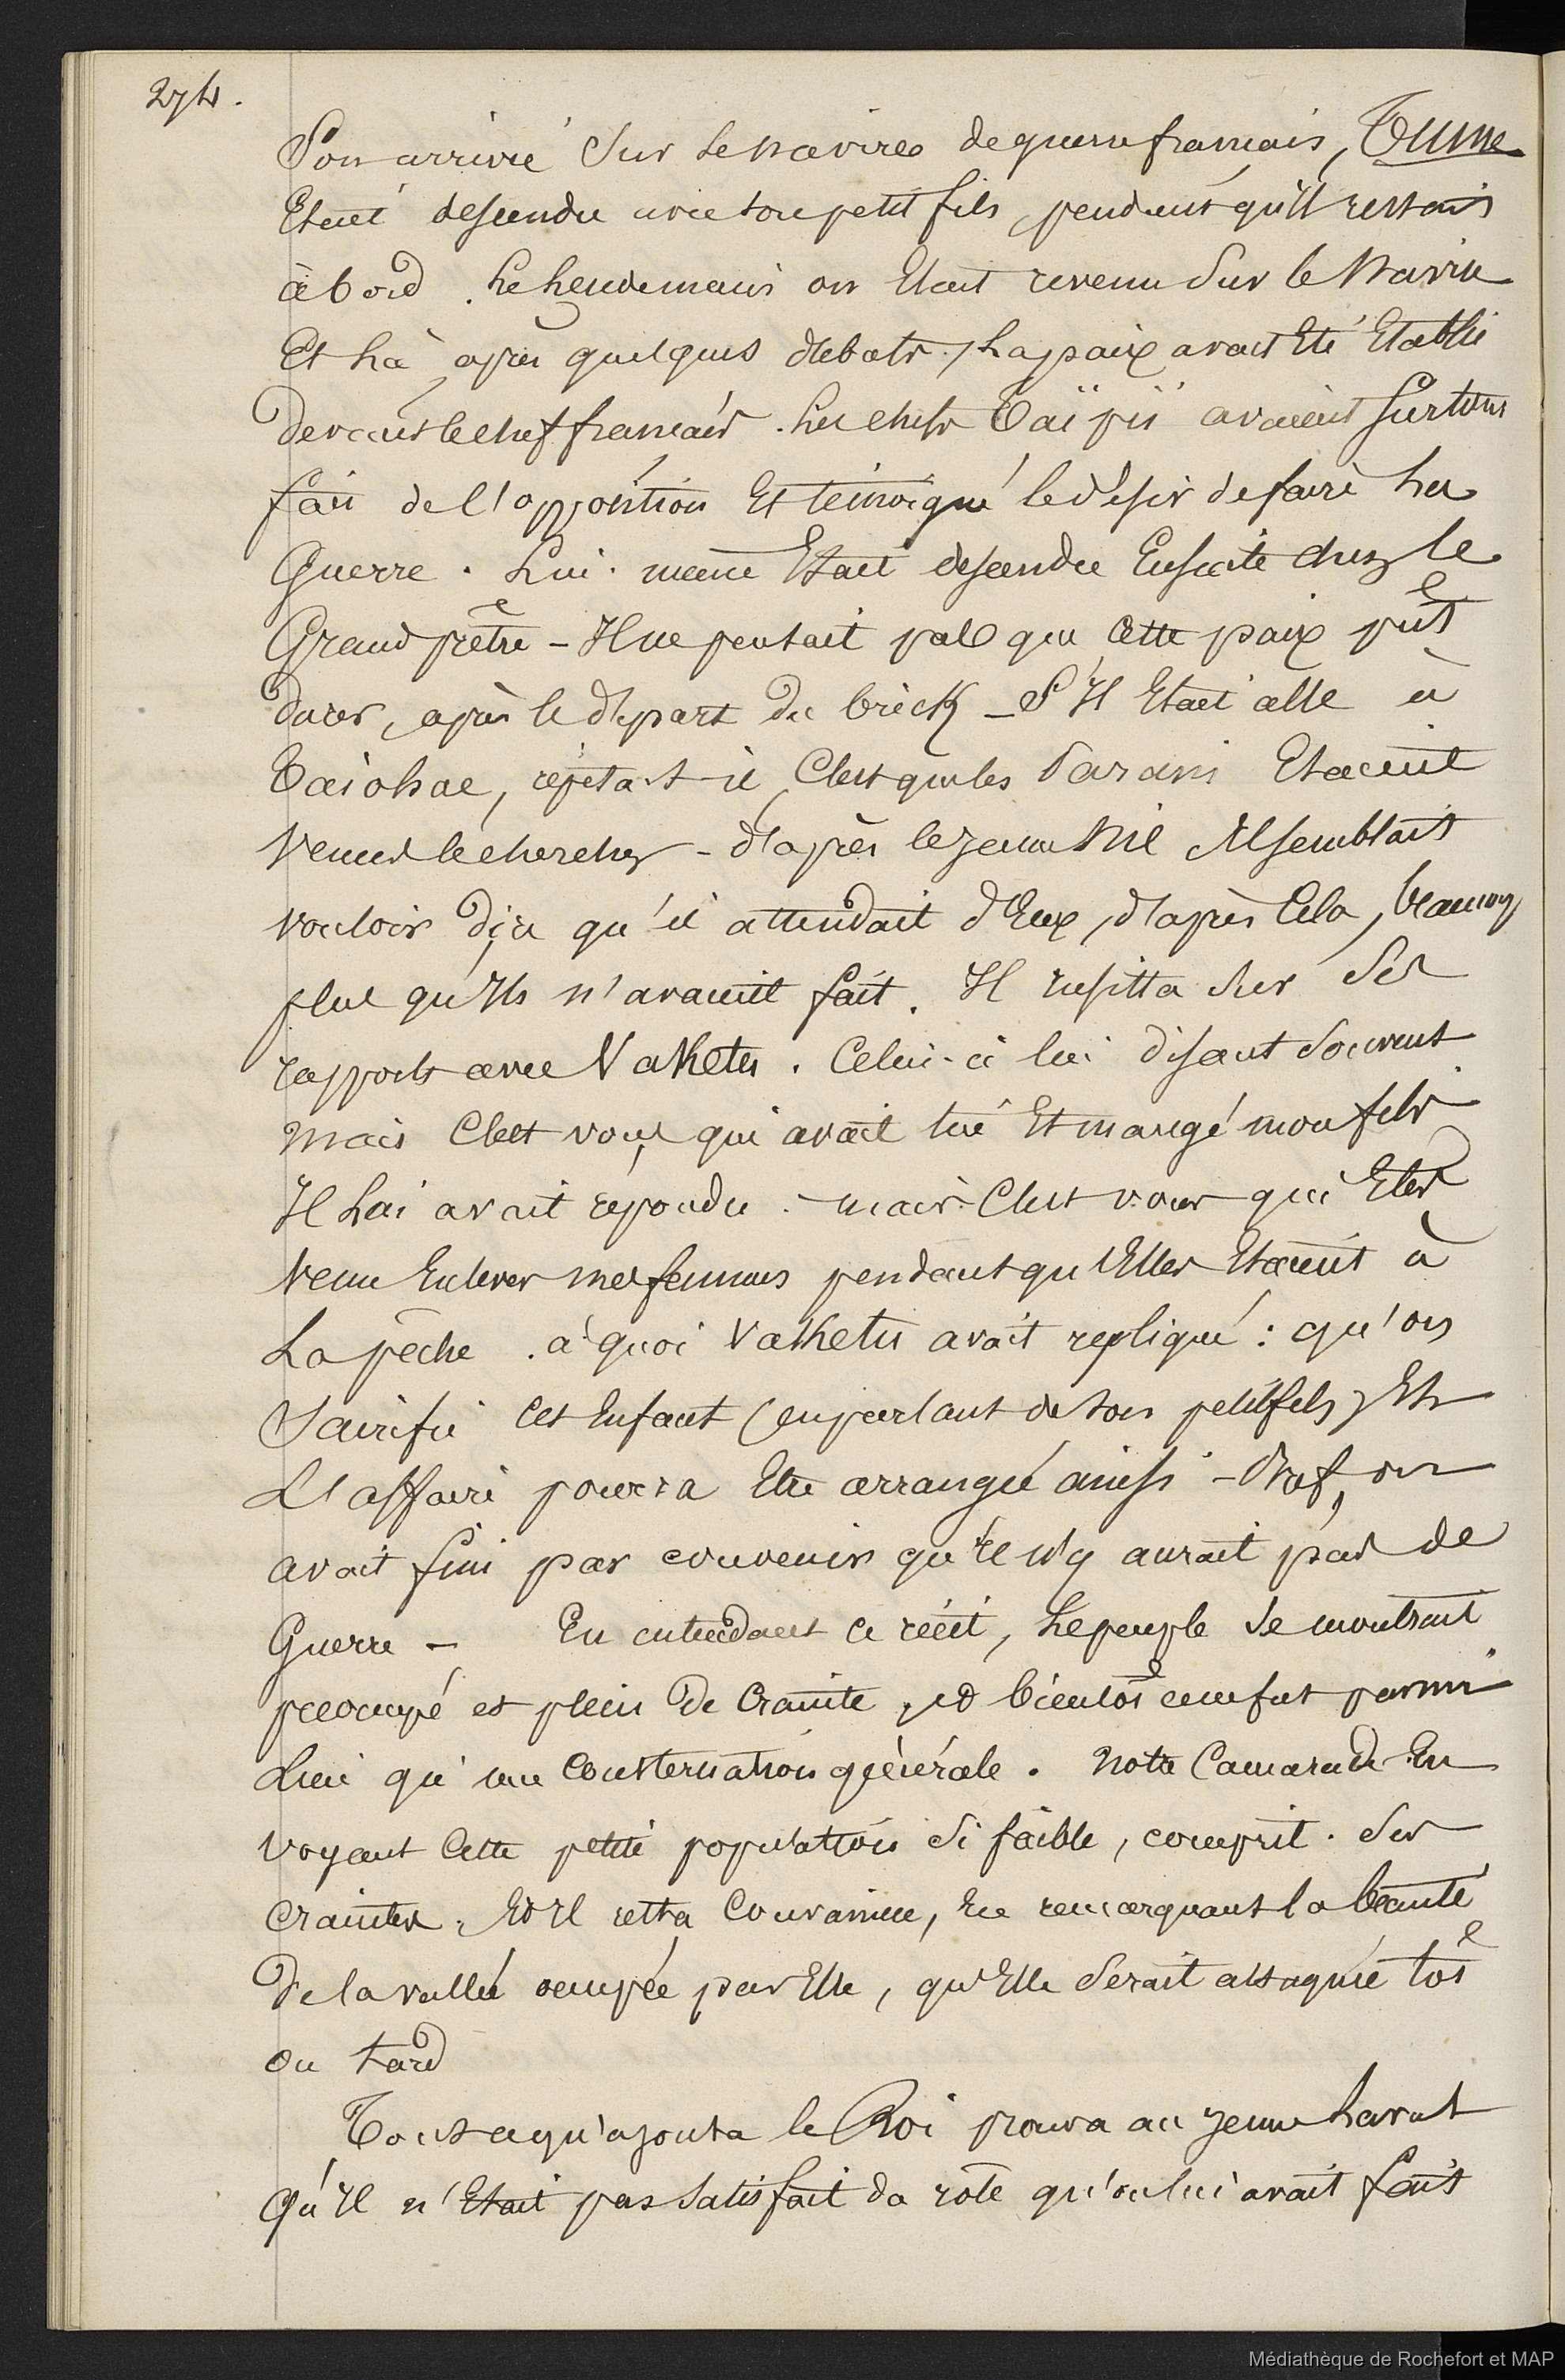 274.
Son arrivé sur le navire de guerre français, Tume
Etait descendu avec son petit fils, pendant qu'il restait
à bord. Le Lendemain on Etait revenu sur le Navire
Et Là après quelques débats, La paix avait Eté Etablie
devant le chef français. Les chefs Taïpii avaient surtout
fait de l'opposition Et témoigné le désir de faire La
Guerre. Lui-même Etait descendu Ensuite chez le
Grand prêtre - Il ne pensait pas que Cette paix pût
durer, après le départ du brick - S'Il Etait allé à
Taiohae, répéta-t-il, C'est que les Farani Etaient
Venus le chercher - d'après le jeune Nil Il semblait
vouloir dire qu'il attendait d'Eux, d'après Cela, beaucoup
plus qu'Ils n'avaient fait. Il insista sur ses
rapports avec Vaketu. Celui-ci lui disant souvent
Mais C'est vous qui avait tué Et mangé mon fils
Il Lui avait répondu. - mais C'est vous qui Etes
Venu Enlever mes femmes pendant qu'Elles Etaient à
La pêche. à quoi Vaketu avait repliqué : qu'on
Sacrifie Cet Enfant (en parlant de son petit fils) Et
L'affaire pourra Etre arrangée ainsi - Bref, on
avait fini par convenir qu'il n'y aurait pas de
Guerre - En entendant ce récit, Le peuple se montrait
préoccupé et plein de Crainte, et bientôt ce ne fut parmi
Lui qu'une Consternation générale. Notre Camarade En
voyant Cette petite population si faible, comprit ses
craintes. Et Il resta Convaincu, En remarquant la beauté
de la vallée occupée par Elle, qu'Elle serait attaquée tôt
ou tard
Tout ce qu'ajouta le Roi prouva au jeune havant
Qu'Il n'Etait pas satisfait du rôle qu'on lui avait fait
Médiathèque de Rochefort et MAP